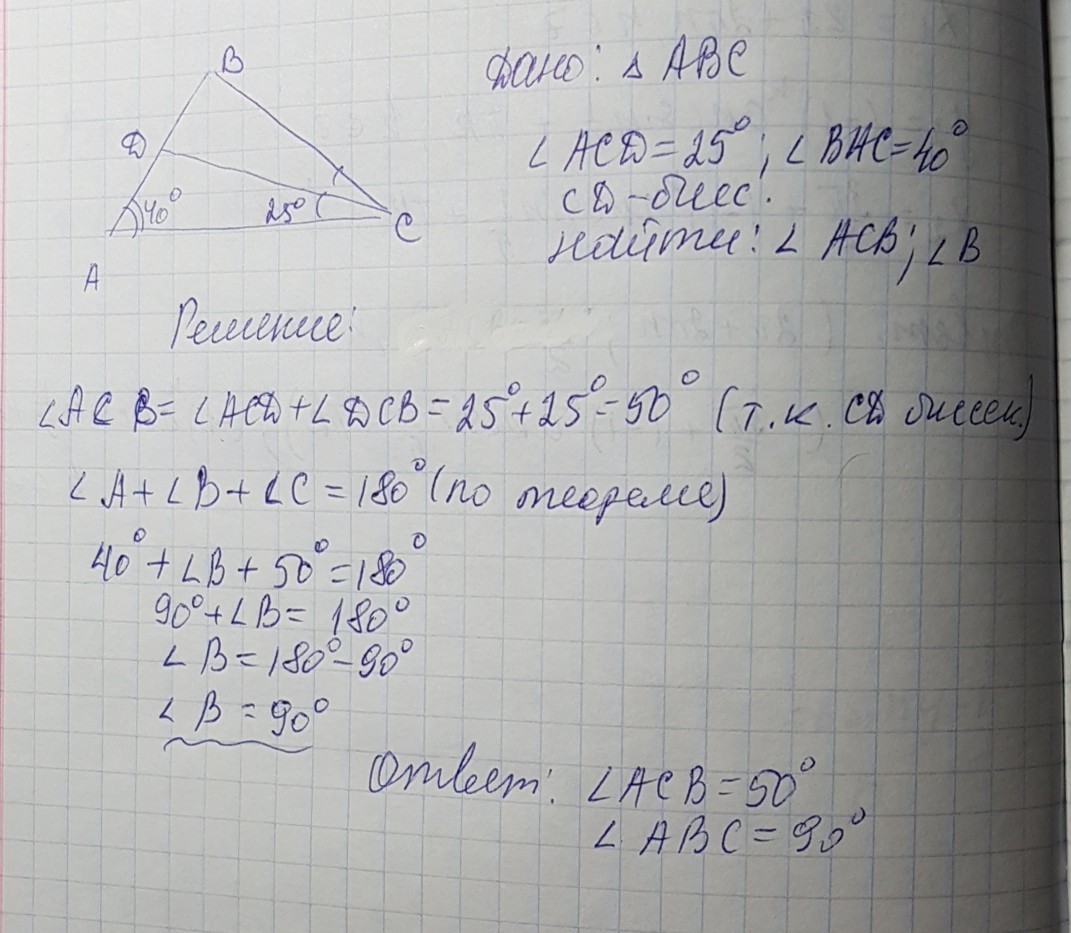 B
Дано: △ ABC
D
∠ ACD = 25°; ∠ BAC = 40°
40°
25°
CD - бисс.
C
Найти: ∠ ACB; ∠ B
A
Решение:
∠ACB = ∠ACD + ∠DCB = 25° + 25° = 50° (т.к. CD биссек.)
∠A + ∠B + ∠C = 180° (по теореме)
40° + ∠B + 50° = 180°
90° + ∠B = 180°
∠B = 180° - 90°
∠B = 90°
Ответ: ∠ACB = 50°
∠ABC = 90°